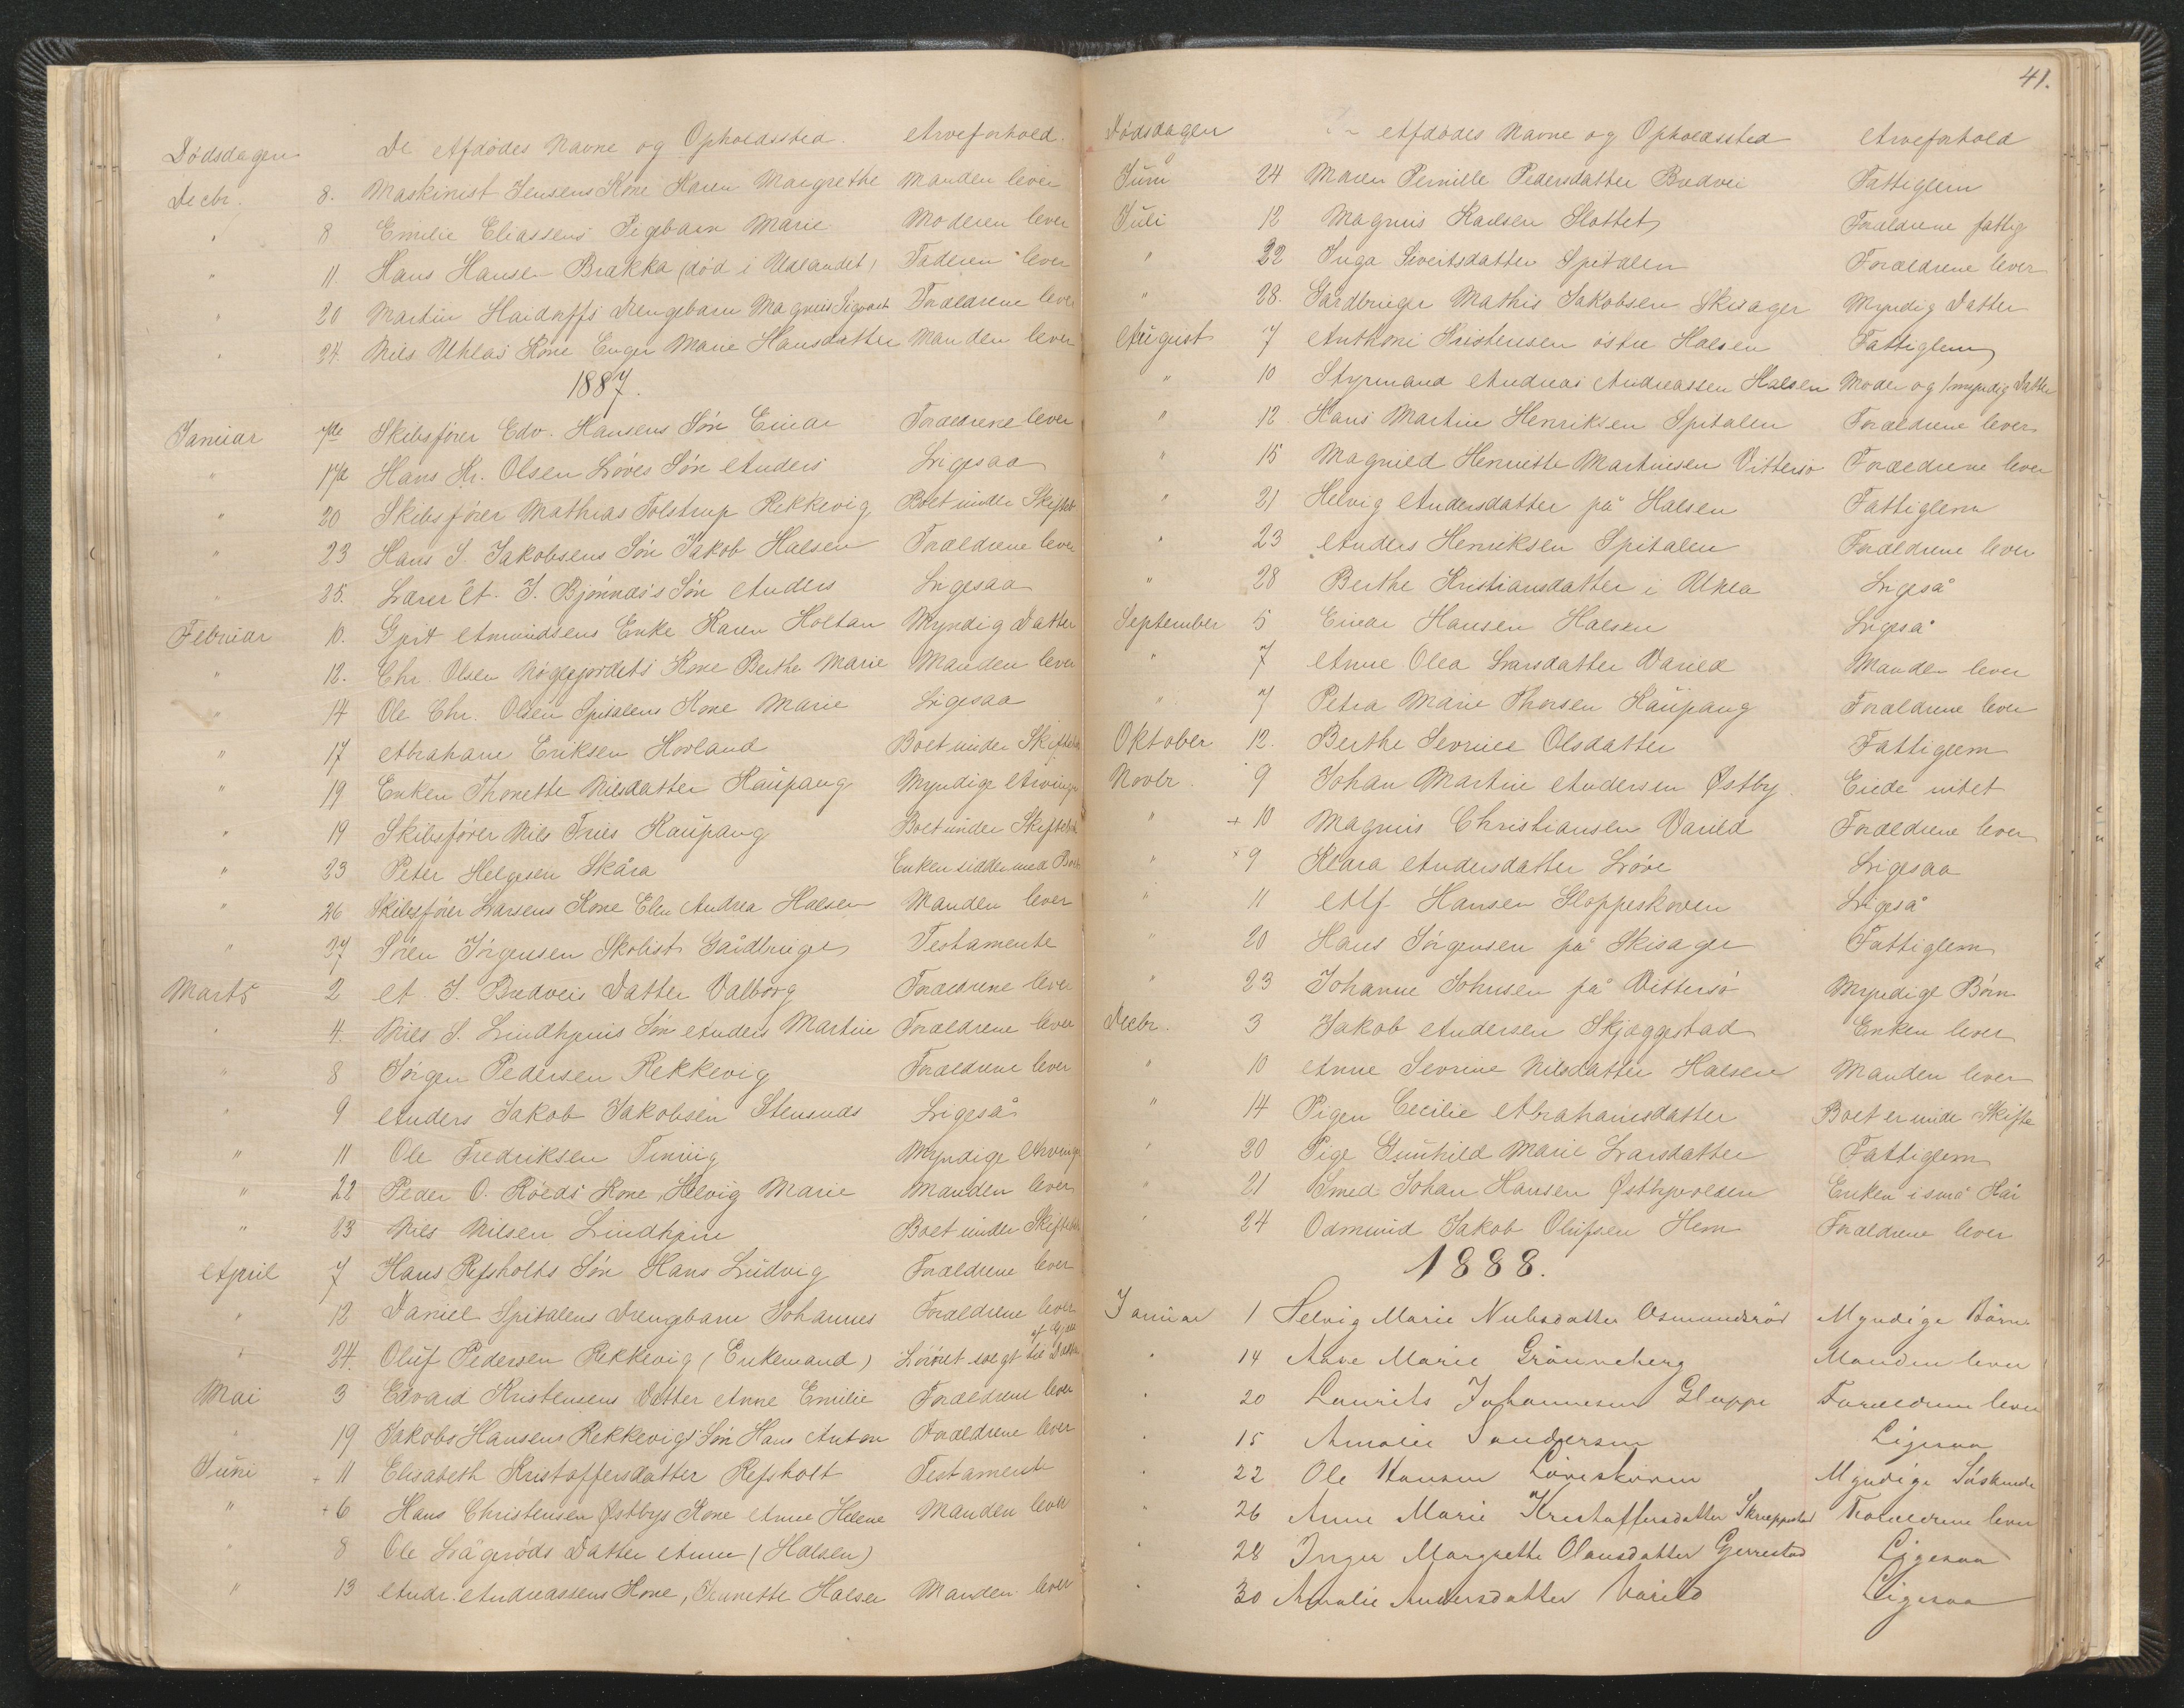 Dødsdagen De Afdødes Navne og Opholdssted. Arveforhold.
Decbr. 8. Maskinist Jensens Kone Karen Margrethe Manden lever
" 8 Emilie Eliassens Pigebarn Marie Moderen lever
" 11. Hans Hansen Brakka (død i Udlandet) Faderen lever
" 20 Martin Haidorffs Drengebarn Magnus Sigvart Forældrene lever
" 24. Nils Uhlas Kone Enger Marie Hansdatter Manden lever
1887.
Januar 7de Skibsfører Edv. Hansens Søn Einar Forældrene lever
" 17de Hans Kr. Olsen Løves Søn Anders Ligesaa
" 20 Skibsfører Mathias Tolstrup Rekkevig Boet under Skifte
" 23 Hans J. Jakobsens Søn Jakob Halsen Forældrene lever
" 25. Lærer A. J. Bjønnæs's Søn Anders Ligesaa
Februar 10. Amundsens Enke Karen Holtan Myndig Datter
" 12. Chr. Olsen Nøglegjordets Kone Berthe Marie Manden lever
" 14 Ole Chr. Olsen Spitalens Kone Marie Ligesaa
" 17 Abraham Eriksen Hovland Boet under Skiftebeh
" 19 Enken Thonette Nilsdatter Kaupang Myndige Arvinger
" 19 Skibsfører Nils Friis Kaupang Boet under Skiftebeh
" 23 Peter Helgesen Skåra Enken sidder med Boet
" 26 Skibsfører Larsens Kone Elen Andrea Halsen Manden lever
" 27 Søren Jørgensen Skolist Gaardbruger Testamente
Marts 2 A. J. Bredveis Datter Valborg Forældrene lever
" 4. Niels J. Lindhjems Søn Anders Martin Forældrene lever
" 8 Jørgen Pedersen Rekkevig Forældrene lever
" 9 Anders Jakob Jakobsen Stensnæs Ligeså
" 11 Ole Fredriksen Tinvig Myndige Arvinger
" 22 Peder O. Røeds Kone Helvig Marie Manden lever
" 23 Nils Nilsen Lindhjem Boet under Skiftebeh
April 7 Hans Refsholts Søn Hans Ludvig Forældrene lever
" 12 Daniel Spitalens Drengebarn Johannes Forældrene lever
" 24. Oluf Pedersen Rekkevig (Enkemand) Løsøret solgt til
Mai 3 Edvard Kristensens Datter Anne Emilie Forældrene lever
" 19 Jakobs Hansens Rekkevigs Søn Hans Anton Forældrene lever
Juni + 11 Elisabeth Kristoffersdatter Refsholt Testament
" + 6 Hans Christensen Østbys Kone Anne Helene Manden lever
" 8 Ole Lågerøds Datter Anne (Halsen)
" 13 Andr. Andreassens Kone, Jeanette Halsen Manden lever
41.
Dødsdagen Afdødes Navne og Opholdssted Arveforhold
Juni 24 Maren Pernille Pedersdatter Bredvei Fattiglem
Juli 12 Magnus Karlsen Slottet Forældrene fattig
" 22 Inga Sivertsdatter Spitalen Forældrene lever
" 28. Gårdbruger Mathis Jakobsen Skisager Myndig Datter
August 7 Anthoni Kristensen østre Halsen Fattiglem
" 10 Styrmand Andreas Andreassen Halsen Moder og 1 myndig Datter
" 12 Hans Martin Henriksen Spitalen Forældrene lever
" 15 Magnild Henriette Martinsen Vittersø Forældrene lever
" 21 Helvig Andersdatter på Halsen Fattiglem
" 23 Anders Henriksen Spitalen Forældrene lever
" 28 Berthe Kristiansdatter i Ulnea Ligeså
September 5 Einar Hansen Halsen Ligeså
" 7 Anne Olea Larsdatter Varild Manden lever
" 7 Petra Marie Thorsen Kaupang Forældrene lever
Oktober 12. Berthe Sevrine Olsdatter Fattiglem
Novbr. 9 Johan Martin Andersen Østby. Eiede intet
" + 10 Magnus Christiansen Varild Forældrene lever
" + 9 Klara Andersdatter Løve Ligesaa
" 11 Alf Hansen Gloppeskoven Ligeså
" 20 Hans Jørgensen på Skisager Fattiglem
" 23 Johanne Johnsen på Vittersø Myndige Børn
Decbr. 3 Jakob Andersen Skjæggestad Enken lever
" 10 Anne Sevrine Nilsdatter Halsen Manden lever
" 14 Pigen Cecilie Abrahamsdatter Boet er under Skifte
" 20 Pige Gunhild Marie Larsdatter Fattiglem
" 21 Smed Johan Hansen Østbyvolden Enken i små Kår
" 24 Odmund Jakob Olufsen Hem Forældrene lever
1888.
Januar 1 Helvig Marie Nielsdatter Osmundsrød Myndige Børn
" 14 Anne Marie Grønneberg Manden lever
" 20 Laurits Johannesen Gloppe Forældrene lever
" 15 Amalie Sandersen Ligesaa
" 22 Ole Hansen Løveskoven Myndige Søskende
" 26 Anne Marie Kristoffersdatter Skræppestad Forældrene lever
" 28 Inger Margrethe Olausdatter Gjerrestad Ligesaa
" 30 Amalie Andersdatter Varild Ligesaa